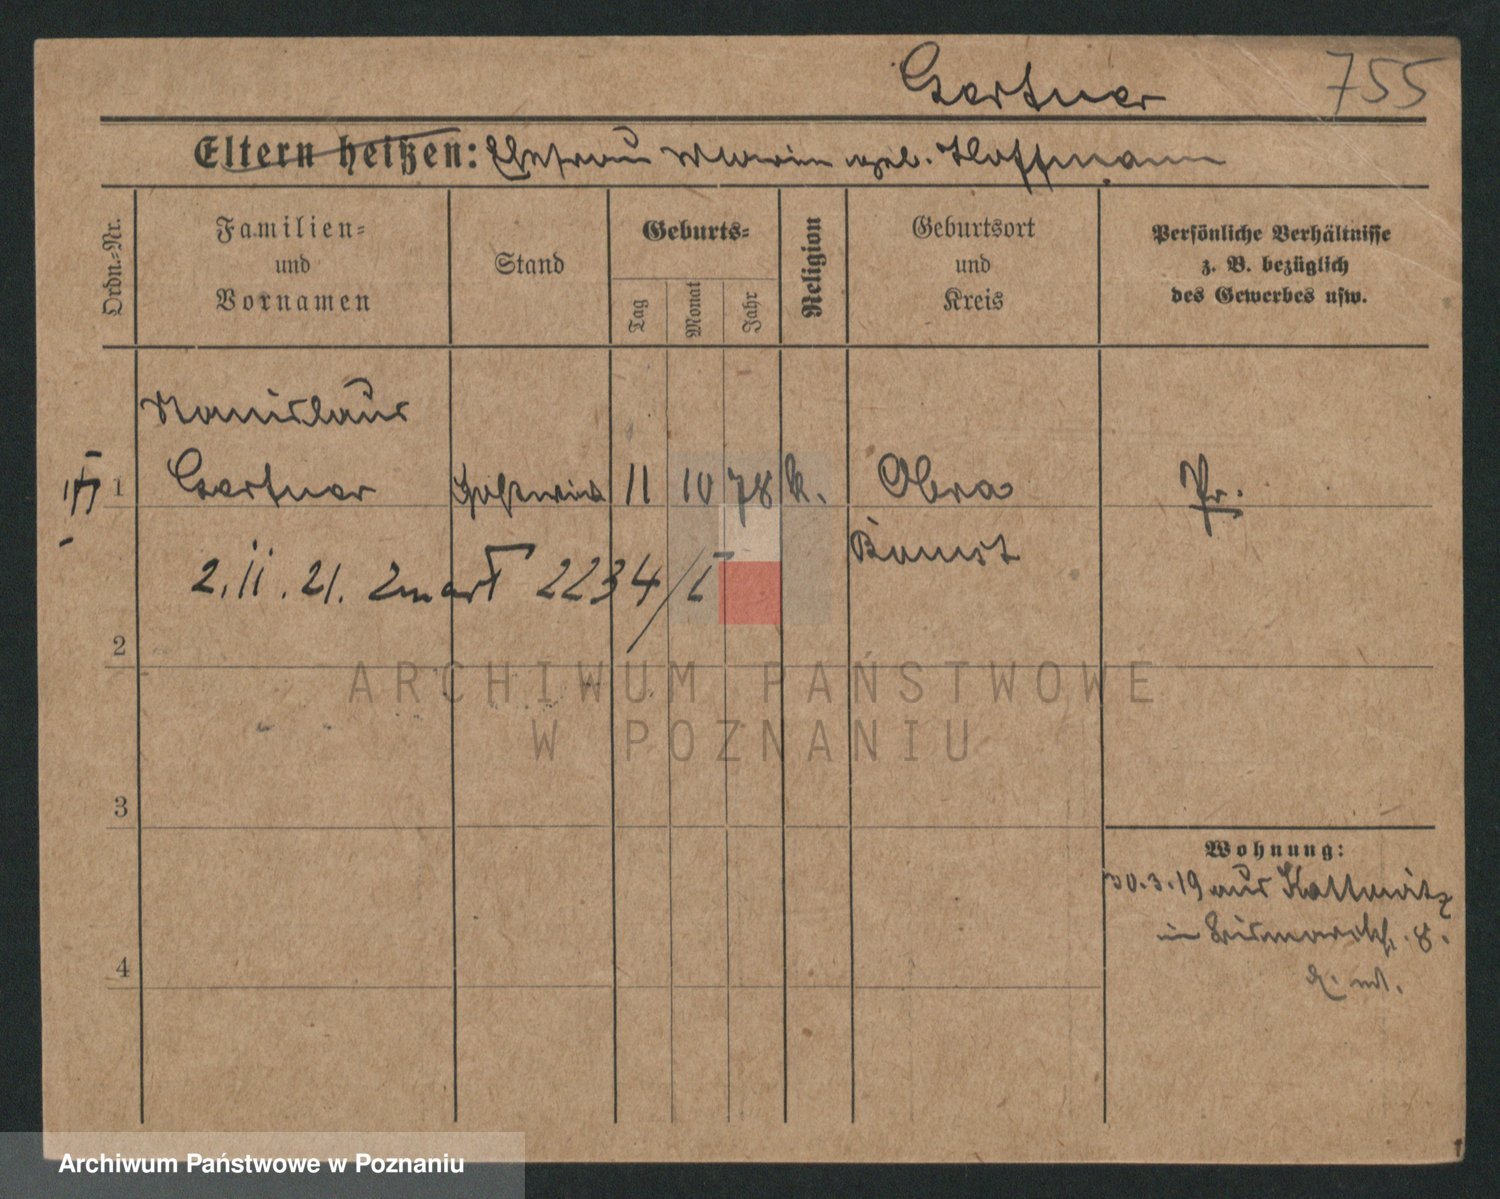 Gertner 755
Eltern heißen: Ehefrau Maria geb. Hoffmann
Ordn.-Nr.
Familien-
und
Vornamen
Stand
Geburts-
Tag
Monat
Jahr
Religion
Geburtsort
und
Kreis
Persönliche Verhältnisse
z. B. bezüglich
des Gewerbes usw.
Stanislaus
1 Gertner Gastwirt 11 10 78 k. Obra Pr.
Bomst
2. 11. 21. zmarł 2234/I
2
ARCHIWUM PAŃSTWOWE
W POZNANIU
3
Wohnung:
30.3.19 aus Kattowitz
in Bismarckstr. 8.
4
Archiwum Państwowe w Poznaniu